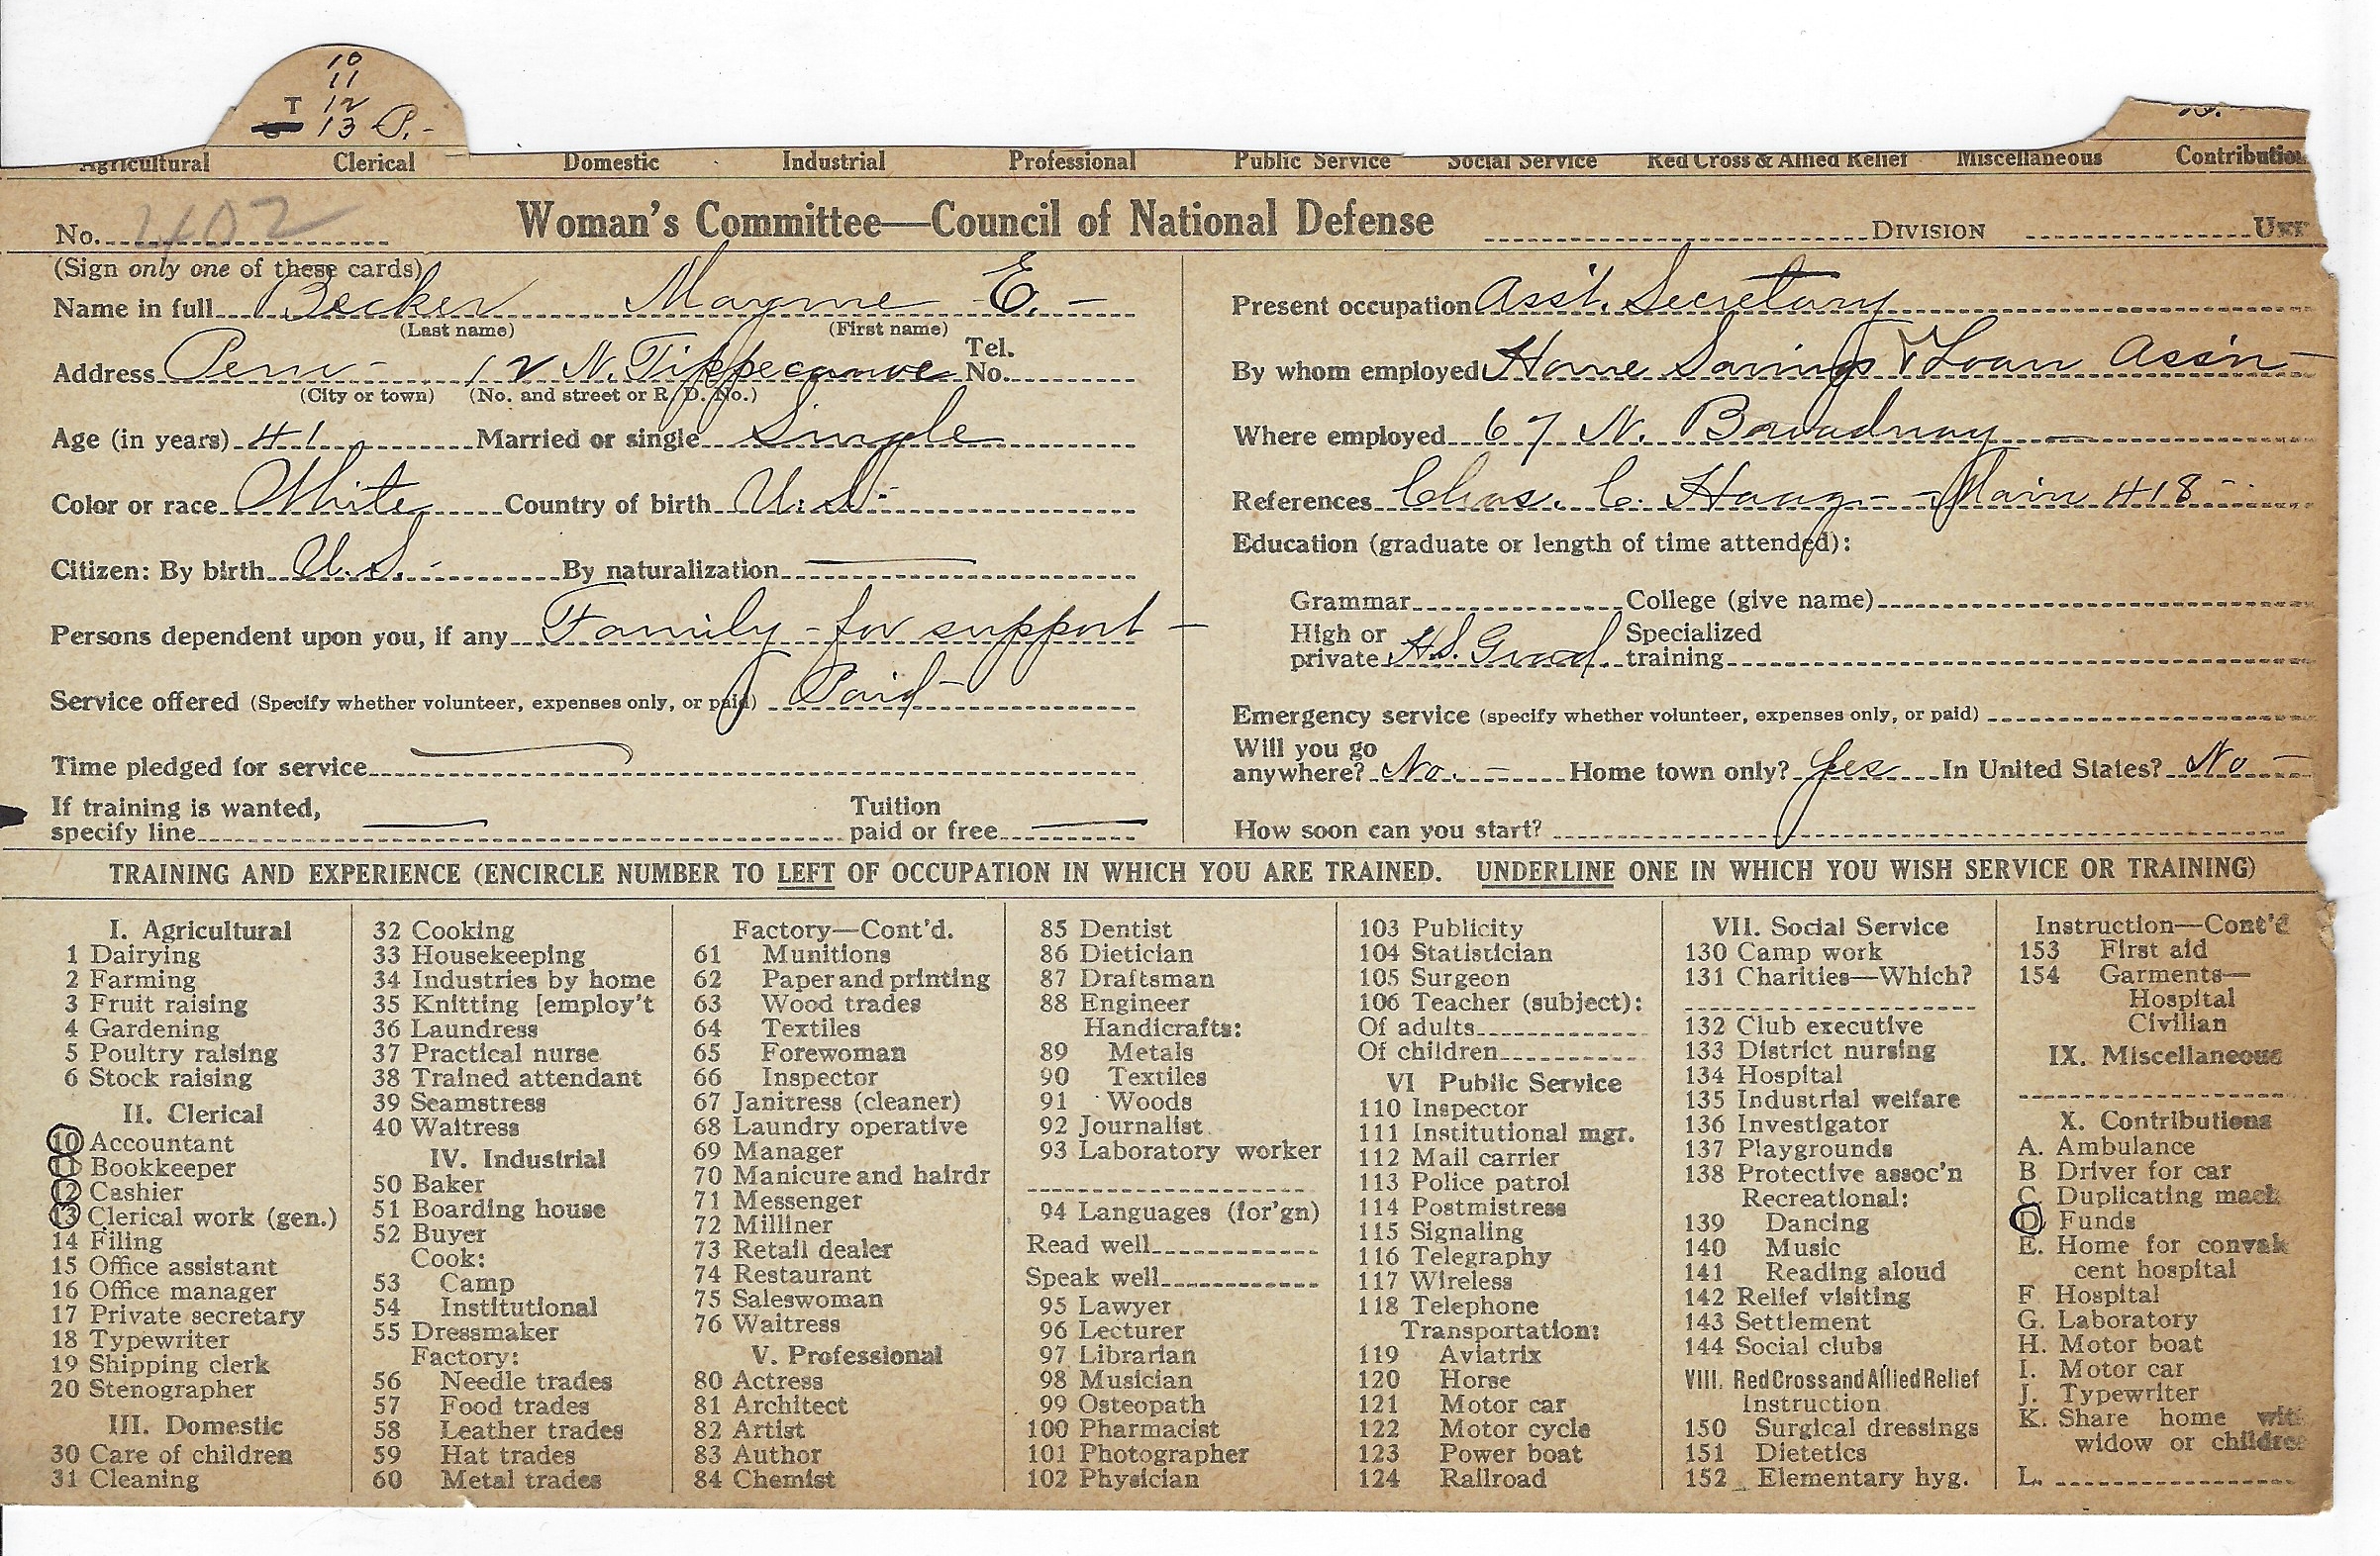 10
11
T 12
13 P.-
D.
Agricultural Clerical Domestic Industrial Professional Public Service Social Service Red Cross & Allied Relief Miscellaneous Contribution
No. 402 Woman's Committee—Council of National Defense DIVISION
(Sign only one of these cards)
Name in full Becker Mayme E. -
(Last name) (First name)
Address Peru - 12 N. Tippecanoe Tel. No.
(City or town) (No. and street or R. D. No.)
Age (in years) 41 Married or single Single
Color or race White Country of birth U.S.-
Citizen: By birth U.S. - By naturalization —
Persons dependent upon you, if any Family - for support -
Service offered (Specify whether volunteer, expenses only, or paid) Paid -
Time pledged for service —
If training is wanted, specify line — Tuition paid or free —
Present occupation Asst. Secretary
By whom employed Home Savings & Loan Ass'n -
Where employed 67 N. Broadway -
References Chas. C. Haag - - Main 418 -
Education (graduate or length of time attended):
Grammar College (give name)
High or private H.S. Grad Specialized training
Emergency service (specify whether volunteer, expenses only, or paid)
Will you go anywhere? No. - Home town only? Yes In United States? No -
How soon can you start?
TRAINING AND EXPERIENCE (ENCIRCLE NUMBER TO LEFT OF OCCUPATION IN WHICH YOU ARE TRAINED. UNDERLINE ONE IN WHICH YOU WISH SERVICE OR TRAINING)
I. Agricultural
1 Dairying
2 Farming
3 Fruit raising
4 Gardening
5 Poultry raising
6 Stock raising
II. Clerical
10 Accountant
11 Bookkeeper
12 Cashier
13 Clerical work (gen.)
14 Filing
15 Office assistant
16 Office manager
17 Private secretary
18 Typewriter
19 Shipping clerk
20 Stenographer
III. Domestic
30 Care of children
31 Cleaning
32 Cooking
33 Housekeeping
34 Industries by home
35 Knitting [employ't
36 Laundress
37 Practical nurse
38 Trained attendant
39 Seamstress
40 Waitress
IV. Industrial
50 Baker
51 Boarding house
52 Buyer
Cook:
53 Camp
54 Institutional
55 Dressmaker
Factory:
56 Needle trades
57 Food trades
58 Leather trades
59 Hat trades
60 Metal trades
Factory—Cont'd.
61 Munitions
62 Paper and printing
63 Wood trades
64 Textiles
65 Forewoman
66 Inspector
67 Janitress (cleaner)
68 Laundry operative
69 Manager
70 Manicure and hairdr
71 Messenger
72 Milliner
73 Retail dealer
74 Restaurant
75 Saleswoman
76 Waitress
V. Professional
80 Actress
81 Architect
82 Artist
83 Author
84 Chemist
85 Dentist
86 Dietician
87 Draftsman
88 Engineer
Handicrafts:
89 Metals
90 Textiles
91 Woods
92 Journalist
93 Laboratory worker
94 Languages (for'gn)
Read well
Speak well
95 Lawyer
96 Lecturer
97 Librarian
98 Musician
99 Osteopath
100 Pharmacist
101 Photographer
102 Physician
103 Publicity
104 Statistician
105 Surgeon
106 Teacher (subject):
Of adults
Of children
VI Public Service
110 Inspector
111 Institutional mgr.
112 Mail carrier
113 Police patrol
114 Postmistress
115 Signaling
116 Telegraphy
117 Wireless
118 Telephone
Transportation:
119 Aviatrix
120 Horse
121 Motor car
122 Motor cycle
123 Power boat
124 Railroad
VII. Social Service
130 Camp work
131 Charities—Which?
132 Club executive
133 District nursing
134 Hospital
135 Industrial welfare
136 Investigator
137 Playgrounds
138 Protective assoc'n
Recreational:
139 Dancing
140 Music
141 Reading aloud
142 Relief visiting
143 Settlement
144 Social clubs
VIII. Red Cross and Allied Relief
Instruction
150 Surgical dressings
151 Dietetics
152 Elementary hyg.
Instruction—Cont'd
153 First aid
154 Garments—
Hospital
Civilian
IX. Miscellaneous
X. Contributions
A. Ambulance
B Driver for car
C. Duplicating mach
D. Funds
E. Home for convales
cent hospital
F Hospital
G. Laboratory
H. Motor boat
I. Motor car
J. Typewriter
K. Share home with
widow or children
L.